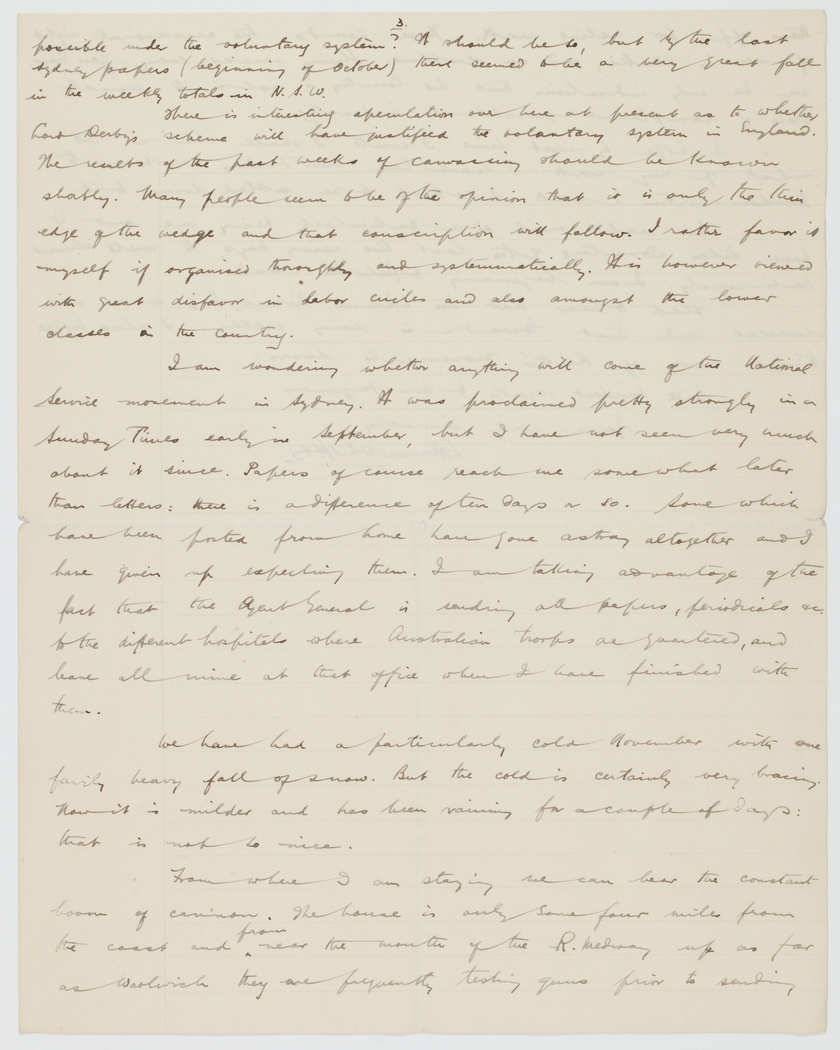 3.
possible under the voluntary system? It should be so, but by the last
Sydney papers (beginning of October) there seemed to be a very great fall
in the weekly totals in N.S.W.
There is interesting speculation over here at present as to whether
Lord Derby's scheme will have justified the voluntary system in England.
The results of the past weeks of canvassing should be known
shortly. Many people seem to be of the opinion that it is only the thin
edge of the wedge and that conscription will follow. I rather favor it
myself if organised thoroughly and systemmatically. It is however viewed
with great disfavor in Labor circles and also amongst the lower
classes in the country.
I am wondering whether anything will come of the National
Service movement in Sydney. It was proclaimed pretty strongly in a
Sunday Times early in September, but I have not seen very much
about it since. Papers of course reach me somewhat later
than letters: there is a difference of ten days or so. Some which
have been posted from home have gone astray altogether and I
have given up expecting them. I am taking advantage of the
fact that the Agent General is sending all papers, periodicals &c.
to the different hospitals where Australian troops are quartered, and
leave all mine at that office when I have finished with
them.
We have had a particularly cold November with one
fairly heavy fall of snow. But the cold is certainly very bracing.
Now it is milder and has been raining for a couple of days:
that is not so nice.
From where I am staying we can hear the constant
boom of cannon. The house is only some four miles from
the coast and from near the mouth of the R. Medway up as far
as Woolwich they are frequently testing guns prior to sending